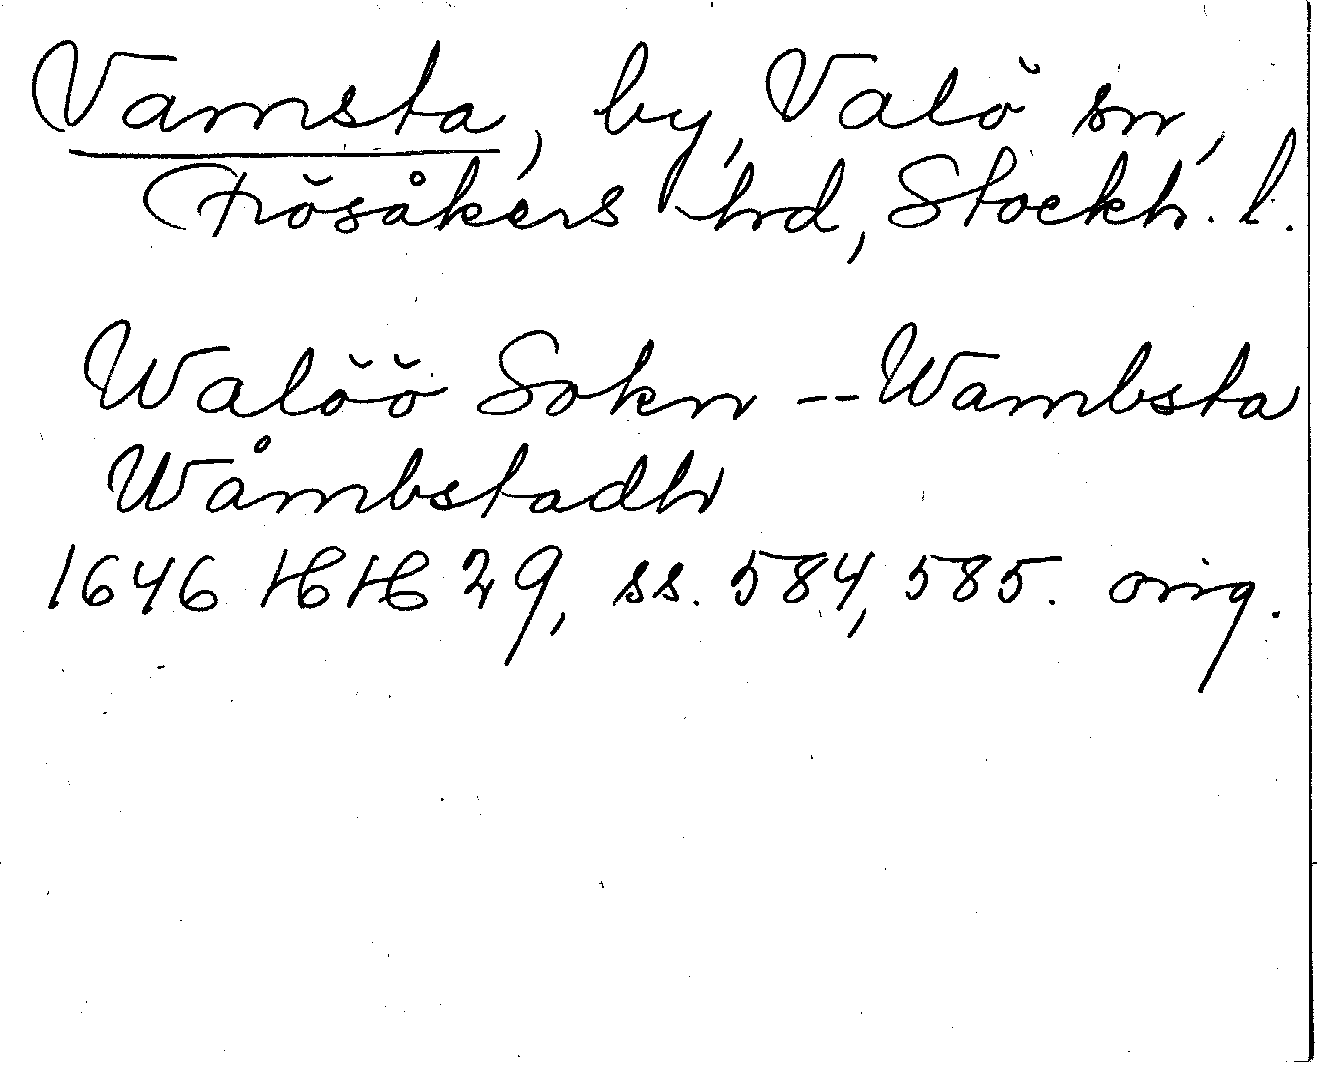 Vamsta, by, Valö sn,
Frösåkers hrd, Stockh. l.
Walöö Sokn -- Wambsta
Wåmbstadh
1646 HH 29, ss. 584, 585. orig.